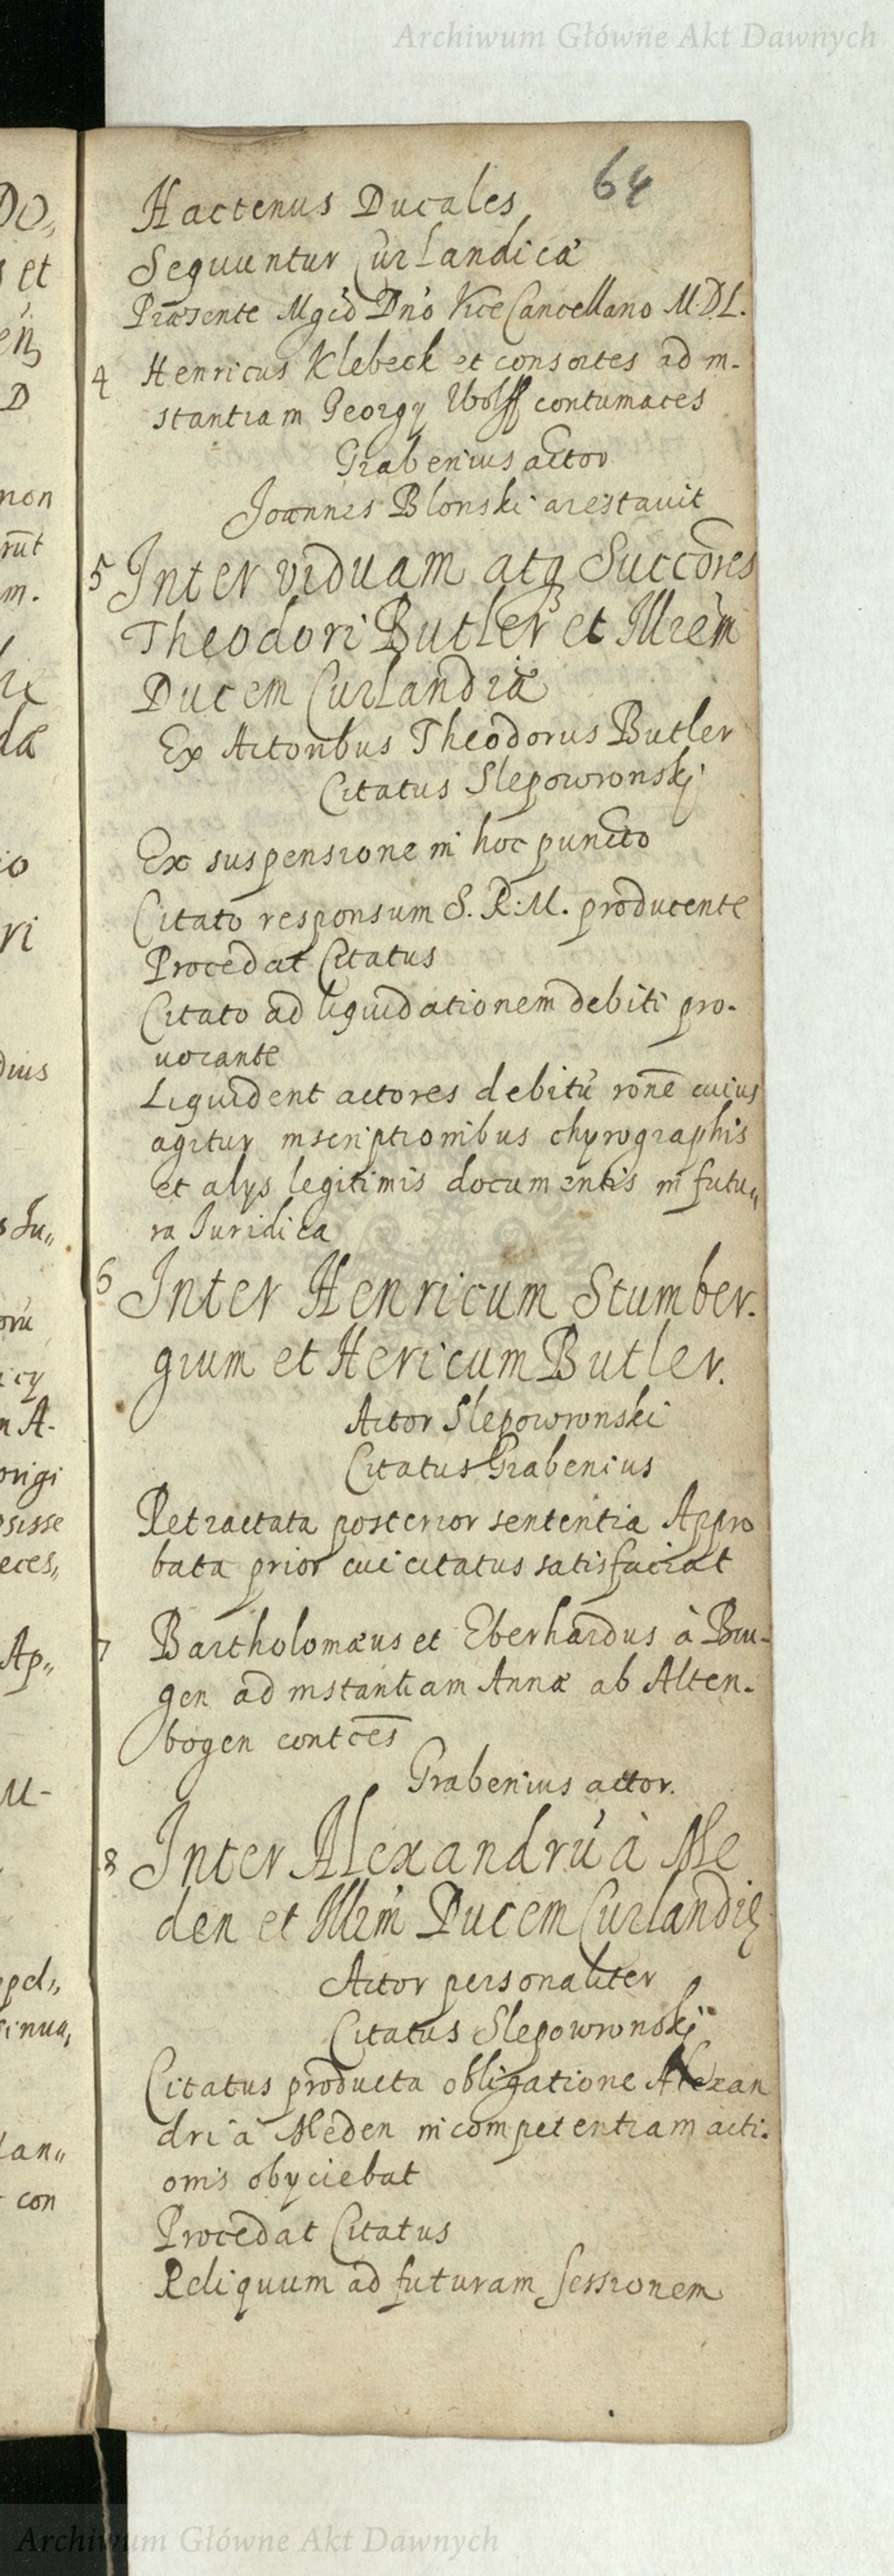 Archiwum Główne Akt Dawnych
64
Hactenus Ducales
Sequuntur Curlandicæ
Præsente Mgcō Dnō Vice Cancellario M.D.L.
4 Henricus Klebeck et consortes ad in-
stantiam Georgy Wolff contumaces
Grabenius actor
Joannes Blonski arestavit
5 Inter viduam atq Succōres
Theodori Butler et Illrem
Ducem Curlandiæ
Ex Actoribus Theodorus Butler
Citatus Slepowronskj
Ex suspensione in hoc puncto
Citato responsum S. R. M. producente
Procedat Citatus
Citato ad liquidationem debiti pro-
vocante
Liquident actores debitū ronē cuius
agitur inscriptionibus chyrographis
et alys legitimis documentis in futu„
ra Iuridica
6 Inter Henricum Stumber-
gium et Hericum Butler.
Actor Slepowronski
Citatus Grabenius
Retractata posterior sententia Appro
bata prior cui citatus satisfaciat
7 Bartholomæus et Eberhardus à Bru-
gen ad instantiam Annæ ab Alten-
bogen contces
Grabenius actor.
8 Inter Alexandrū à Me
den et Illrm Ducem Curlandię
Actor personaliter
Citatus Slepowronskj
Citatus producta obligatione Alexan
dri à Meden incompetentiam acti-
onis obyciebat
Procedat Citatus
Reliquum ad futuram sessionem
Archiwum Główne Akt Dawnych